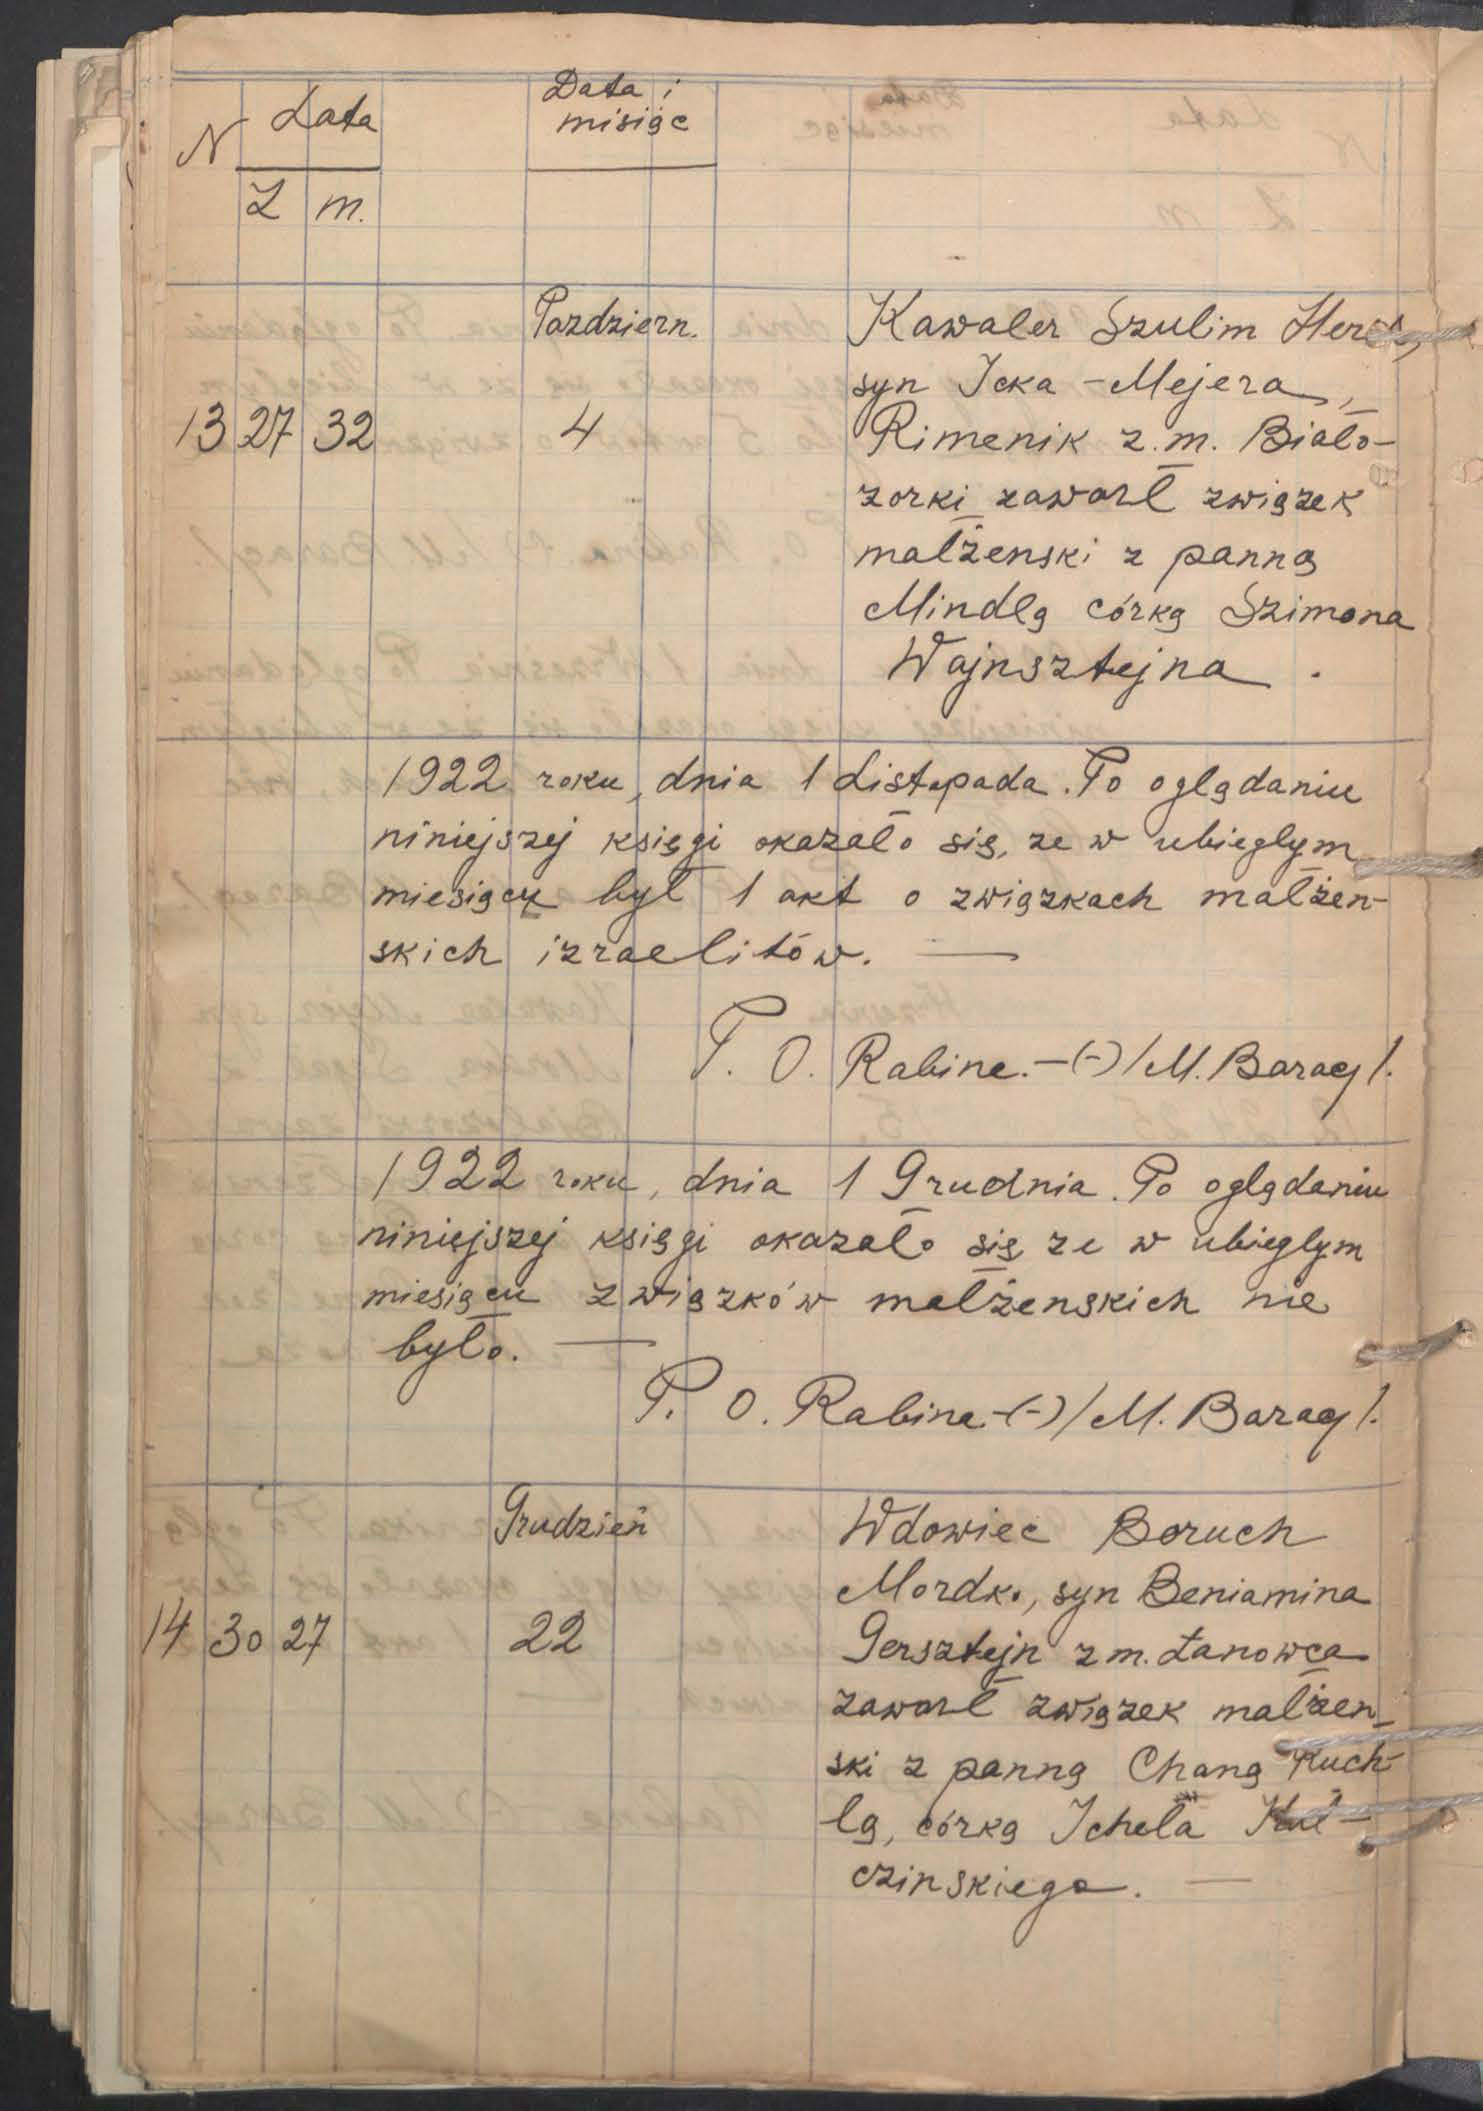 N Lata Data i
misiąc
Ż m.
Pazdziern. Kawaler Szulim Hersz,
syn Icka-Mejera,
13 27 32 4 Rimenik z.m. Biało-
zorki zawarł związek
małżenski z panną
Mindlą córką Szimona
Wajnsztejna.
1922 roku, dnia 1 Listopada. Po oglądaniu
niniejszej księgi okazało się, ze w ubieglym
miesiącu był 1 akt o związkach małżen-
skich izraelitów. —
P. O. Rabine. -(-) /M. Barac/.
1922 roku, dnia 1 Grudnia. Po oglądaniu
niniejszej księgi okazało się ze w ubieglym
miesiącu związków małżenskich nie
było. —
P. O. Rabine -(-) /M. Barac/.
Grudzień Wdowiec Boruch
Mordko, syn Beniamina
14 30 27 22 Gersztejn z m. Łanowca
zawarł związek małżen-
ski z panną Chaną Ruch-
lą, córką Ichela
czinskiego. —